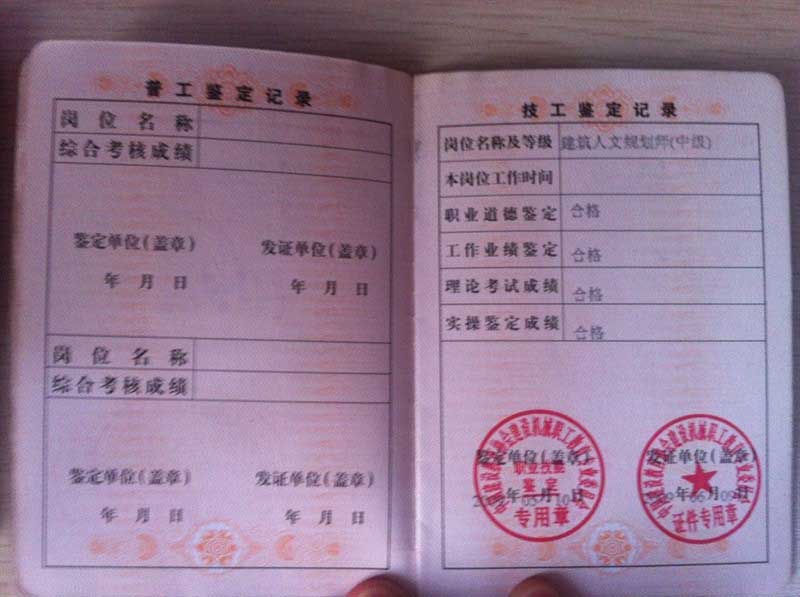 普工鉴定记录
岗位名称
综合考核成绩
鉴定单位(盖章)
发证单位(盖章)
年 月 日
年 月 日
岗位名称
综合考核成绩
鉴定单位(盖章)
发证单位(盖章)
年 月 日
年 月 日
技工鉴定记录
岗位名称及等级 建筑人文规划师(中级)
本岗位工作时间
职业道德鉴定 合格
工作业绩鉴定 合格
理论考试成绩 合格
实操鉴定成绩 合格
鉴定单位(盖章)
职业技能
鉴定
年 月 10日
专用章
发证单位(盖章)
年 月 09日
证件专用章